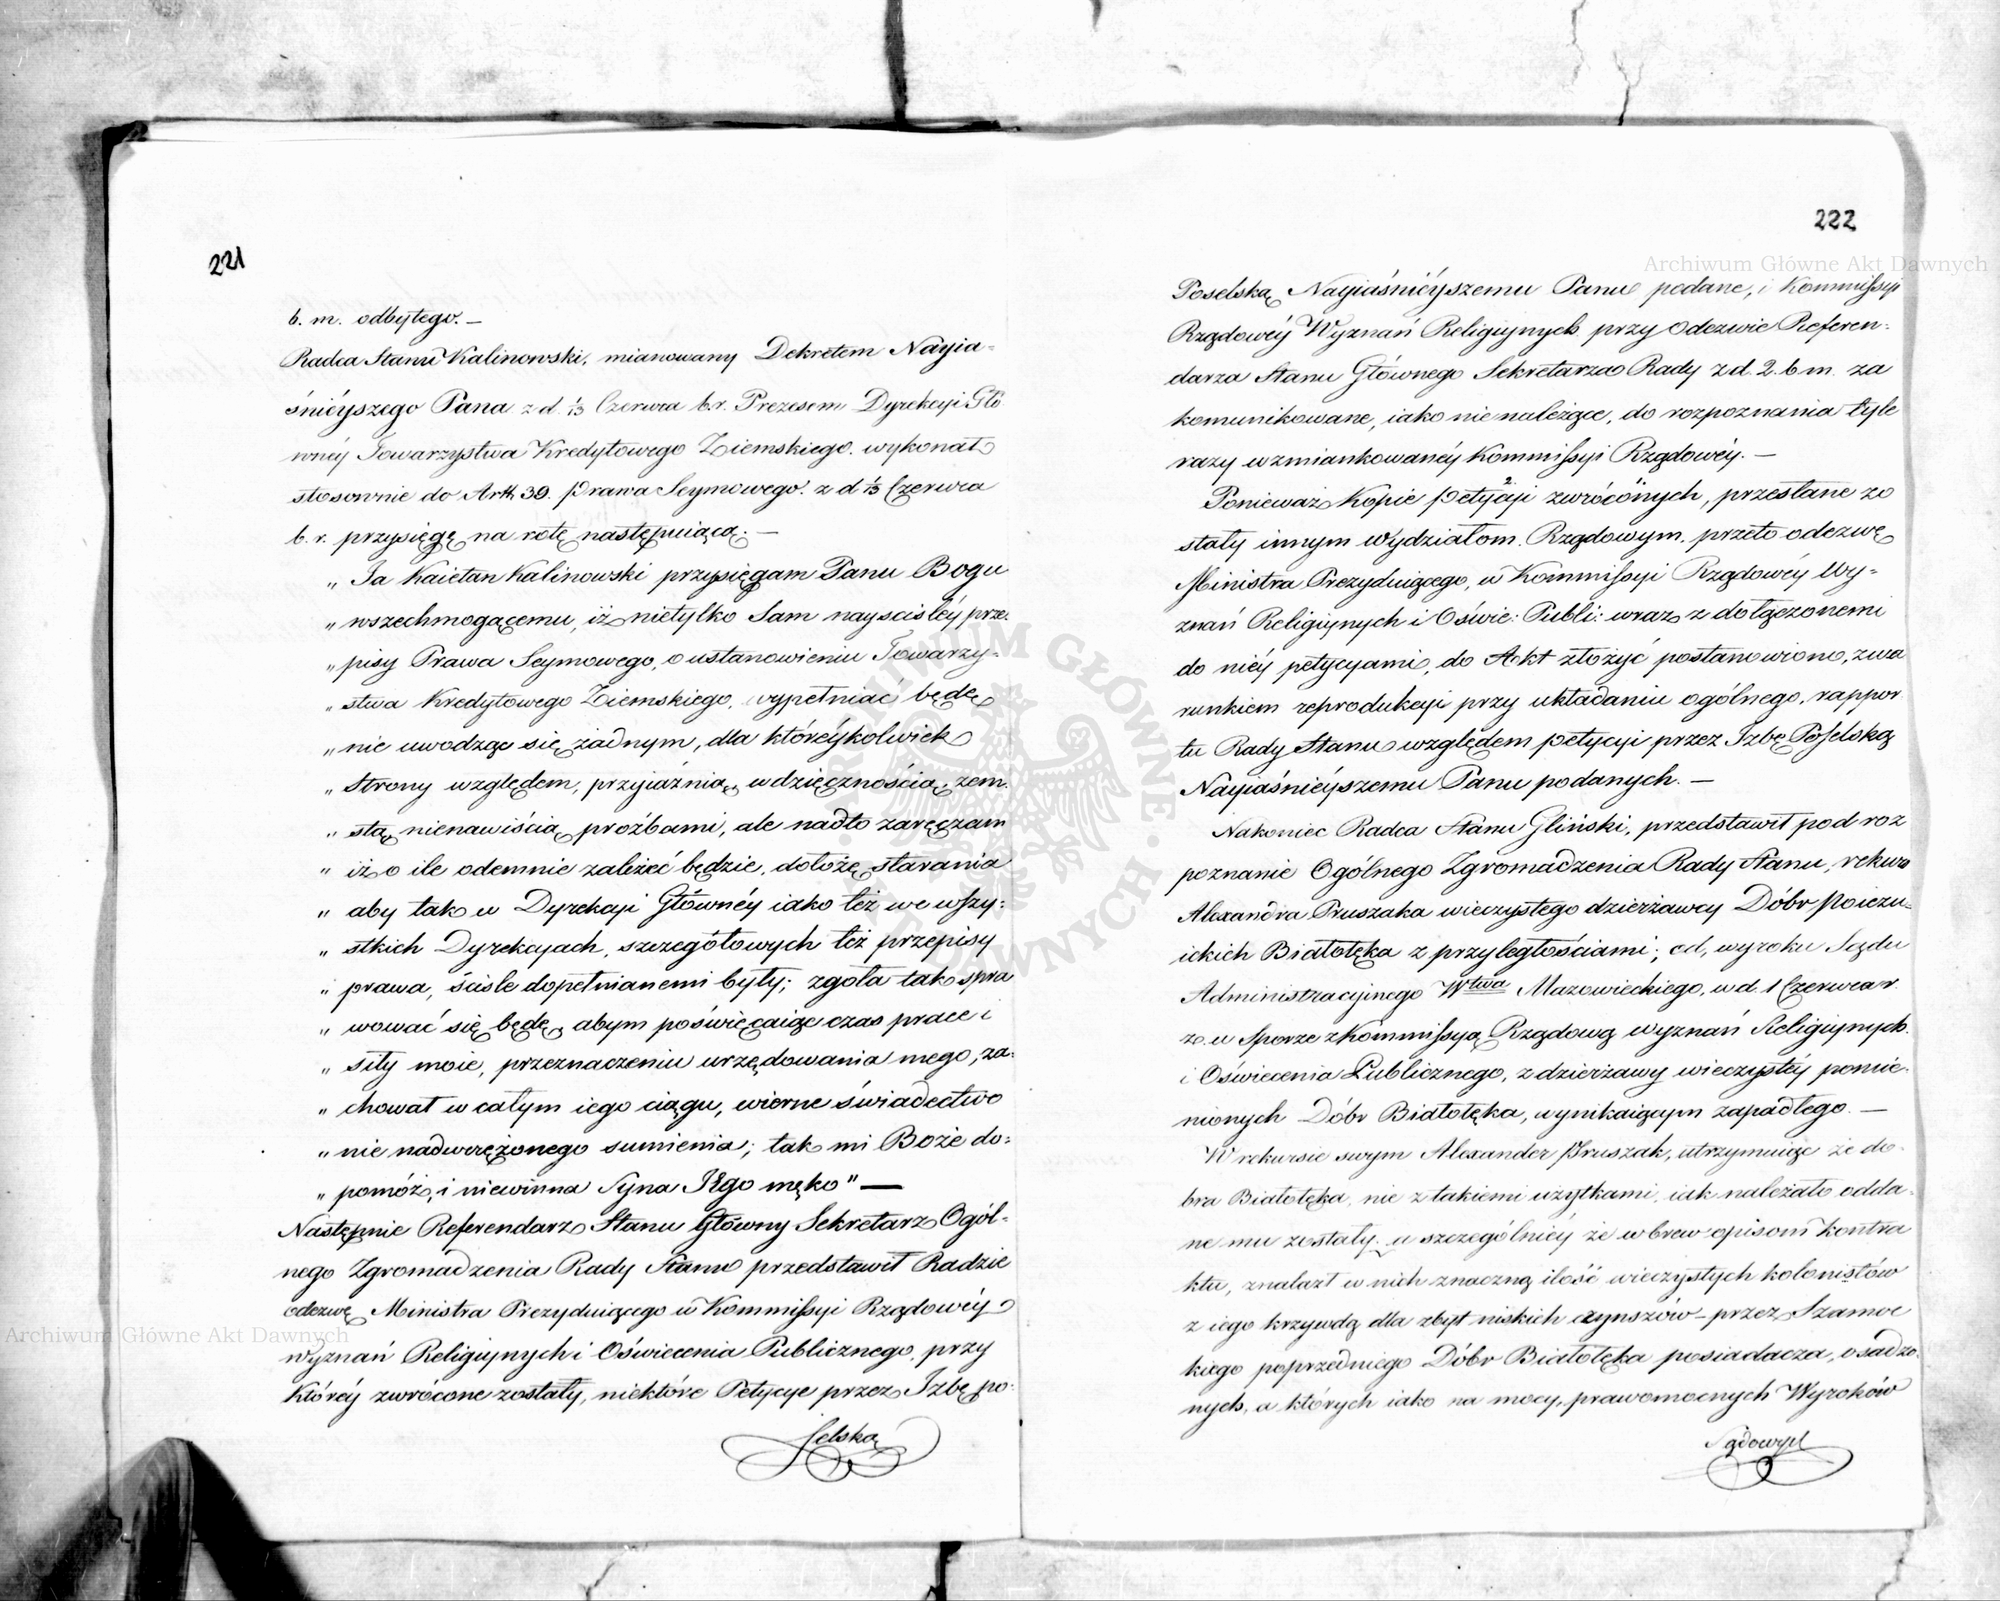 221
b. m. odbytego. —
Radca Stanu Kalinowski, mianowany Dekretem Nayia-
śniéyszego Pana z d. 1/13 Czerwca b.r. Prezesem Dyrekcyi Głó
wnéy Towarzystwa Kredytowego Ziemskiego. wykonał
stosownie do Artt. 39. prawa Seymowego. z d 1/13 Czerwca
b. r. przysięgę na rotę następuiącą: —
„ Ja Kaietan Kalinowski przysięgam Panu Bogu
„ wszechmogącemu, iż nietylko Sam nayściśléy prze-
„ pisy Prawa Seymowego, o ustanowieniu Towarzy-
„ stwa Kredytowego Ziemskiego, wypełniać będę
„ nie uwodząc się żadnym, dla któréykolwiek
„ Strony względem, przyiaźnią, wdzięcznością, zem-
„ stą, nienawiścią prośbami, ale nadto zaręczam
„ iż o ile odemnie zależéć będzie, dołożę starania
„ aby tak w Dyrekcyi Główney iako też we wszy-
„ stkich Dyrekcyach, szczegółowych też przepisy
„ prawa, ściśle dopełnianemi były; zgoła tak spra
„ wować się będę, abym poświęcaiąc czas prace i
„ siły moie, przeznaczeniu urzędowania mego, za-
„ chował w całym iego ciągu, wierne świadectwo
„ nie nadwerężonego sumienia; tak mi Boże do-
„ pomóż, i niewinna Syna Jego męko" —
Następnie Referendarz Stanu Główny Sekretarz Ogól-
nego Zgromadzenia Rady Stanu przedstawił Radzie
odezwę Ministra Prezyduiącego w Kommissyi Rządowéy
wyznań Religiynych i Oświecenia Publicznego, przy
któréy zwrócone zostały, niektóre Petycye przez Izbę po-
selską
222
Poselską Nayiaśniéyszemu Panu podane, i Kommissyi
Rządowéy Wyznań Religiynych przy Odezwie Referen-
darza Stanu Głównego Sekretarza Rady z d. 2. b. m. za
komunikowane, iako nie należące, do rozpoznania tyle
razy wzmiankowanéy Kommissyi Rządowéy. —
Ponieważ Kopie petycyi zwróconych, przesłane zo
stały innym Wydziałom. Rządowym, przeto odezwę
Ministra Prezyduiącego, w Kommissyi Rządowéy Wy-
znań Religiynych i Oświe: Publi: wraz z dołączonemi
do niéy petycyami, do Akt złożyć postanowiono, z wa
runkiem reprodukcyi przy układaniu ogólnego, rappor
tu Rady Stanu względem petycyi przez Izbę Poselską
Nayiaśniéyszemu Panu podanych. —
Nakoniec Radca Stanu Gliński, przedstawił pod roz
poznanie Ogólnego Zgromadzenia Rady Stanu, rekurs
Alexandra Pruszaka wieczystego dzierżawcy Dóbr poiezu-
ickich Białołęka z przyległościami; od, wyroku Sądu
Administracyjnego Wtwa Mazowieckiego, w d. 1 Czerwca r.
z. w Sporze z Kommissyą Rządową wyznań Religiynych.
i Oświecenia Publicznego, z dzierżawy wieczystéy pomie-
nionych Dóbr Białołęka, wynikaiącym zapadłego. —
W rekursie swym Alexander Pruszak, utrzymuiąc że do-
bra Białołęka, nie z takiemi użytkami, iak należało odda-
ne mu zostały, a szczególniéy że wbrew opisom kontra
ktu, znalazł w nich znaczną ilość wieczystych kolonistów
z iego krzywdą dla zbyt niskich czynszów – przez Szamoc
kiego poprzedniego Dóbr Białołęka posiadacza, osadzo-
nych, a których iako na mocy, prawomocnych Wyroków
Sądowych
Archiwum Główne Akt Dawnych
Archiwum Główne Akt Dawnych
ARCHIWUM GŁÓWNE AKT DAWNYCH